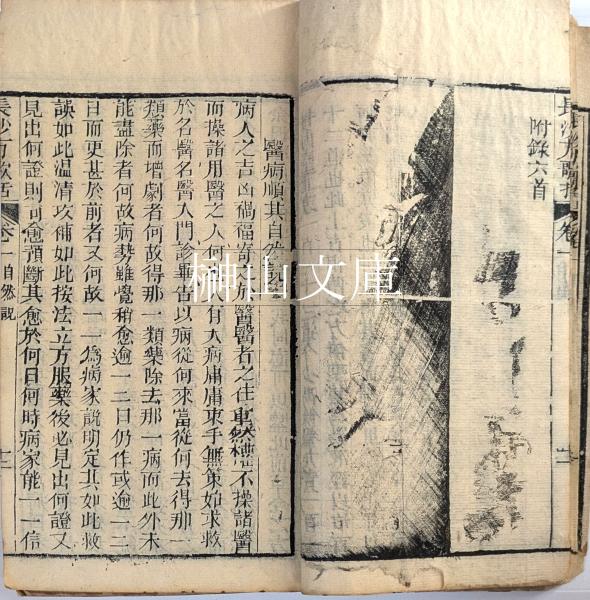 附錄六首
醫病順其自然說
病人之吉凶禍福寄之於醫醫者之任重然權不操諸醫
而操諸用醫之人何則人有大病庸庸束手無策始求救
於名醫名醫入門診畢告以病從何來當從何去得那一
類藥而增劇者何故得那一類藥除去那一病而此外未
能盡除者何故病勢雖覺稍愈逾一二日仍作或逾一二
日而更甚於前者又何故一一為病家說明定其如此救
誤如此溫清攻補如此按法立方服藥後必見出何證又
見出何證則可愈預斷其愈於何日何時病家能一一信
長沙方歌括 卷一 自然說 十二
榊山文庫